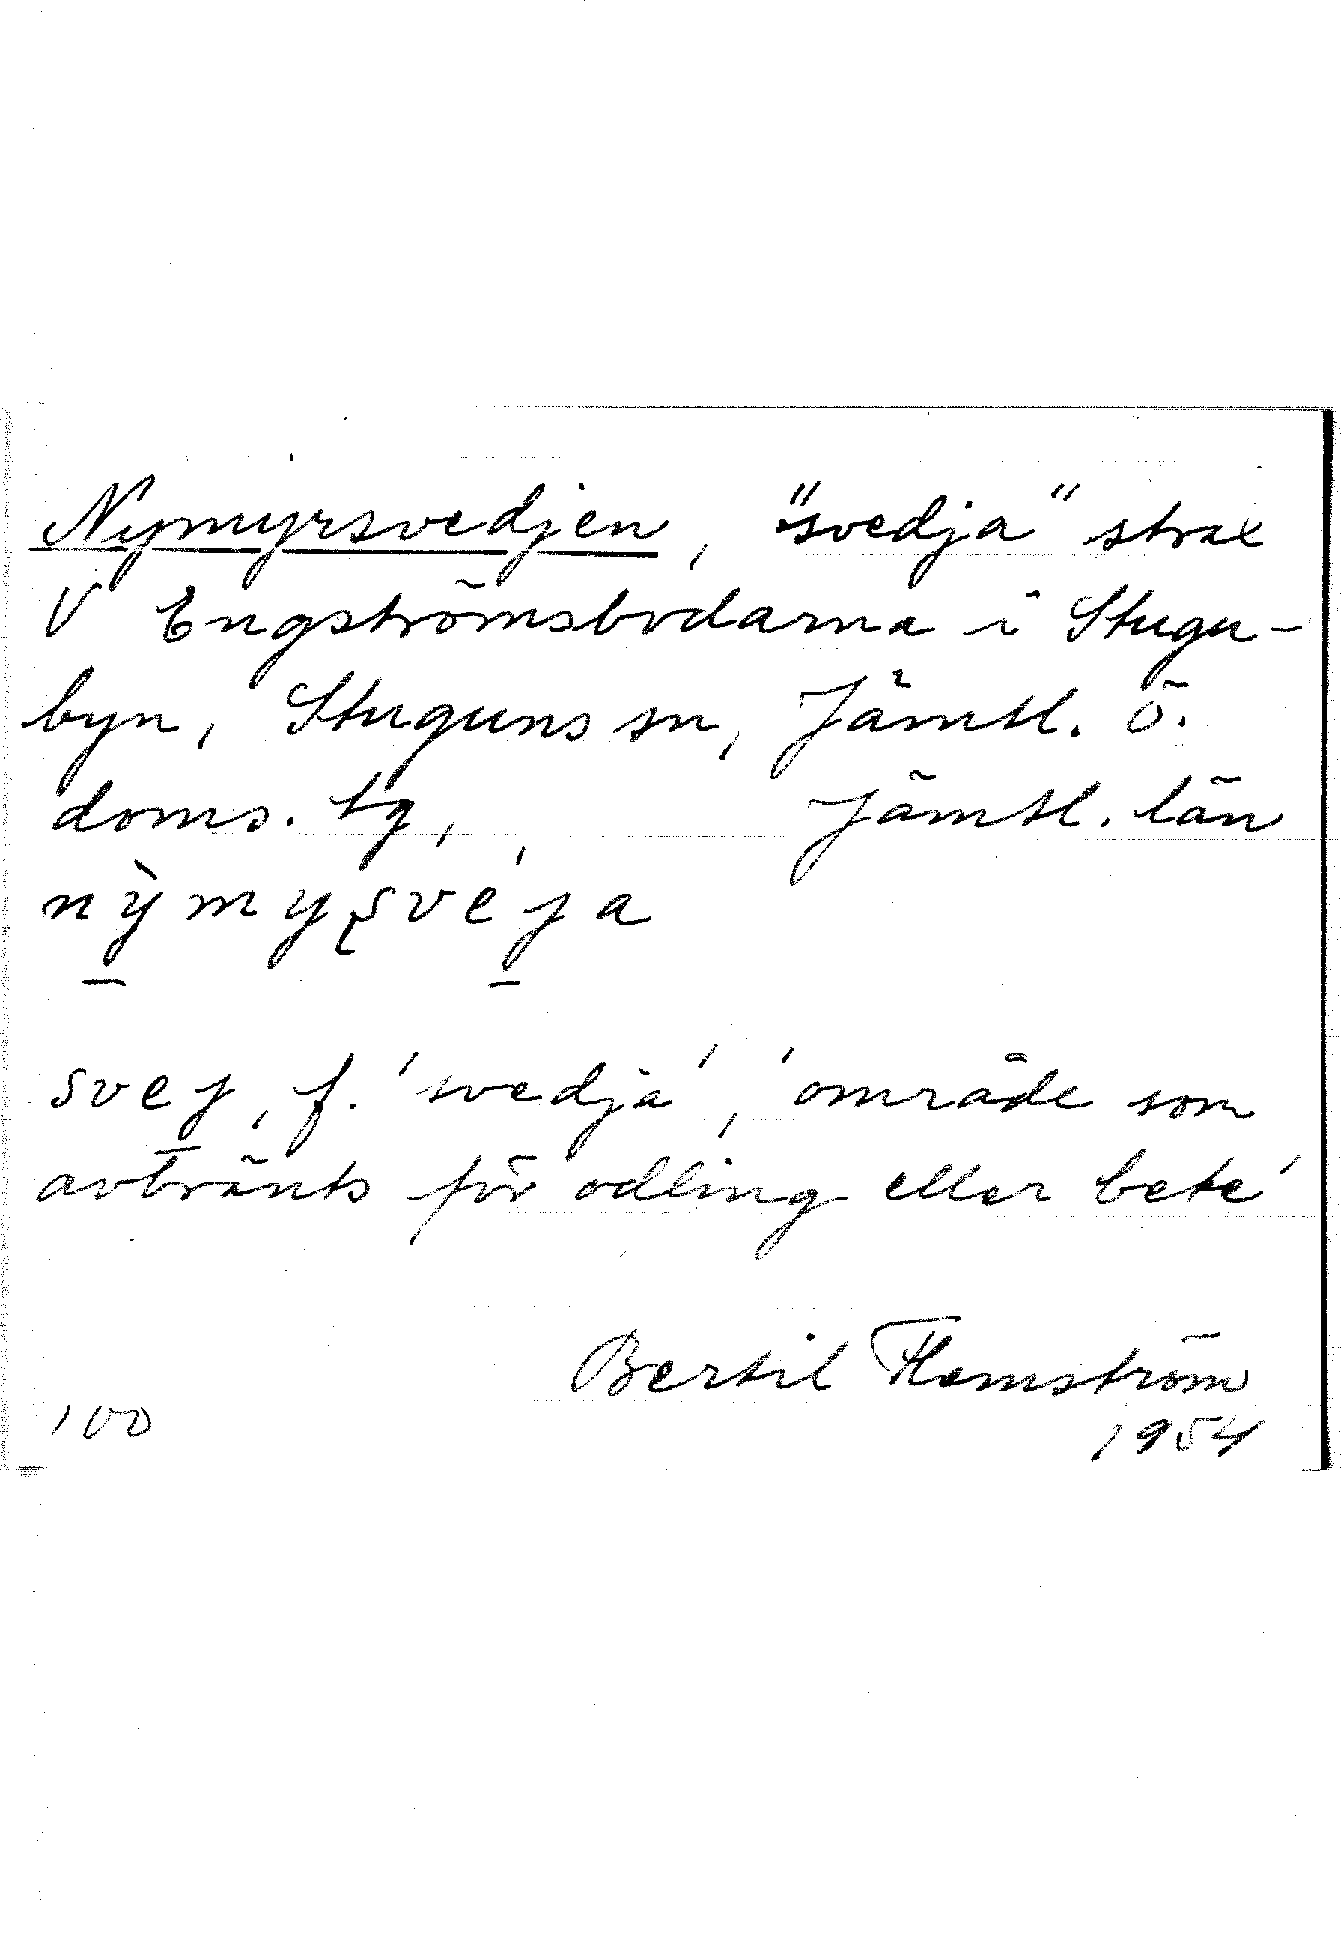 Nymyrsvedjen, "svedja" strax
V Engströmsbodarna i Stugu-
byn, Stuguns sn, Jämtl. ö.
doms. tg, Jämtl. län
nỳmyʂvéja
svej, f. 'svedja', 'område som
avbränts för odling eller bete'
Bertil Flemström
100
1954